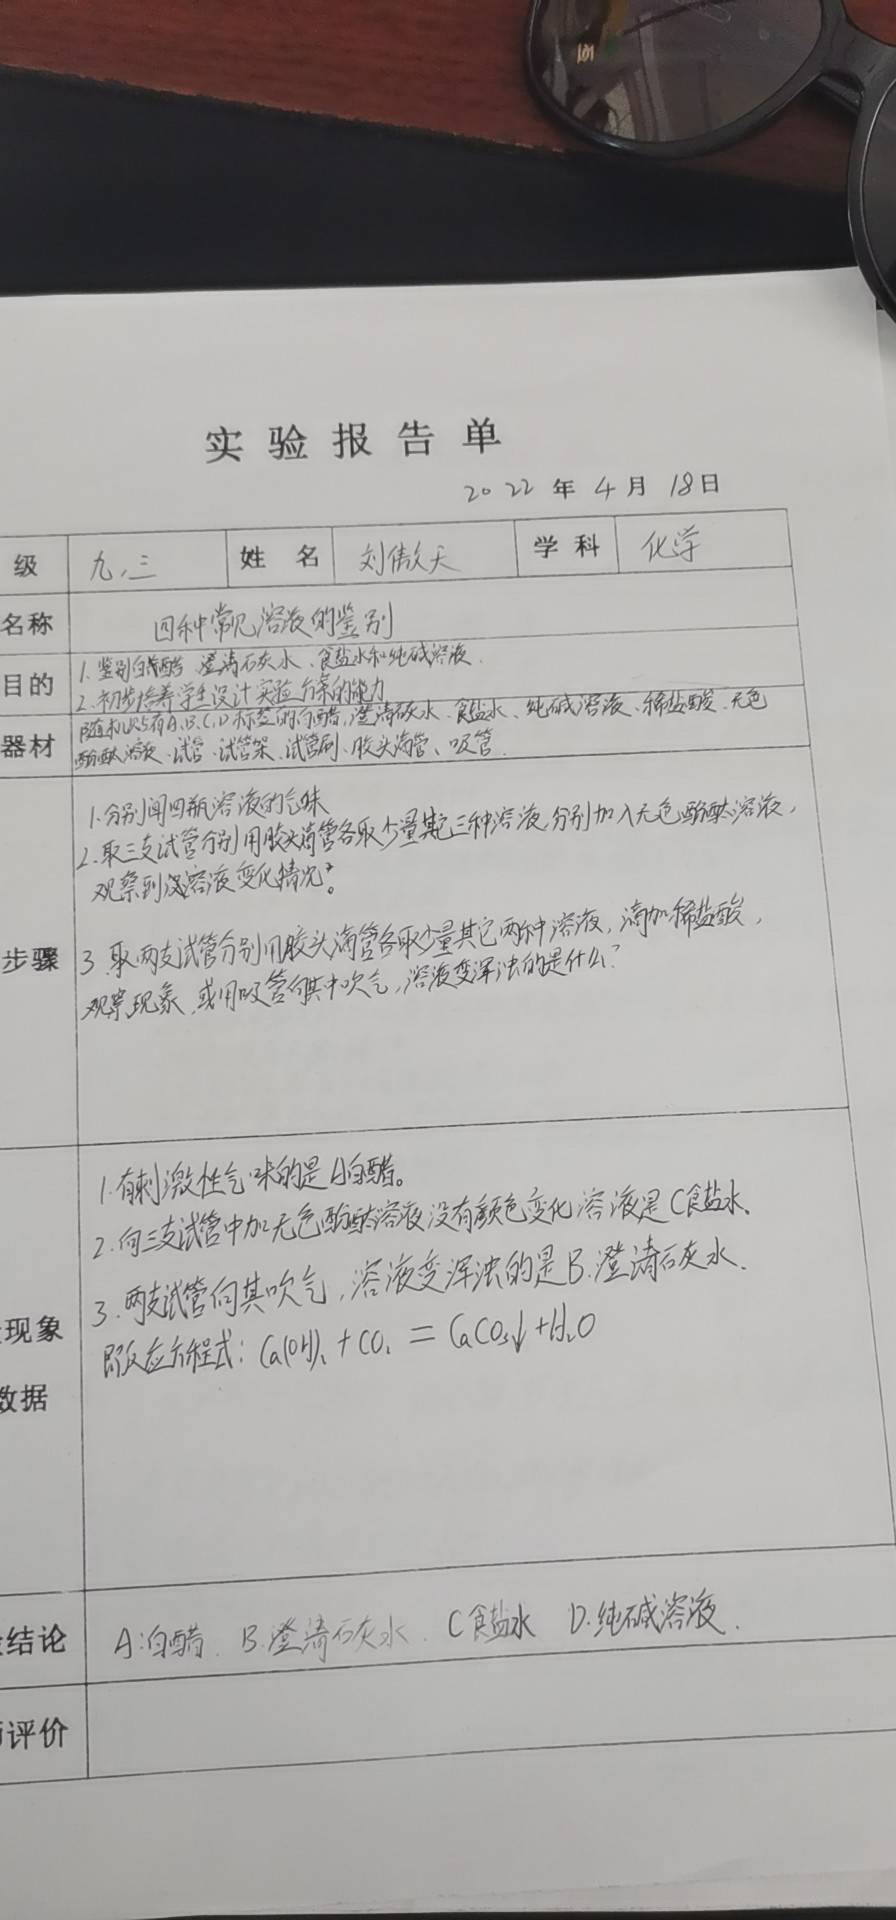 实验报告单
2022年4月18日
级 九.三 姓名 刘傲天 学科 化学
名称 四种常见溶液的鉴别
目的 1.鉴别白醋 澄清石灰水、食盐水和纯碱溶液.
2.初步培养学生设计实验方案的能力
器材 随机贴有A、B、C、D标签的白醋,澄清石灰水、食盐水、纯碱溶液、稀盐酸、无色
酚酞溶液、试管、试管架、试管刷、胶头滴管、吸管.
1.分别闻四瓶溶液的气味
2.取三支试管分别用胶头滴管各取少量其它三种溶液,分别加入无色酚酞溶液,
观察到溶液变化情况?。
步骤 3.取两支试管分别用胶头滴管各取少量其它两种溶液,滴加稀盐酸,
观察现象,或用吸管向其中吹气,溶液变浑浊的是什么?
1.有刺激性气味的是A白醋。
2.向三支试管中加无色酚酞溶液没有颜色变化溶液是C食盐水.
3.两支试管向其吹气,溶液变浑浊的是B.澄清石灰水.
现象 即反应方程式:Ca(OH)₂+CO₂=CaCO₃↓+H₂O
数据
结论 A:白醋. B.澄清石灰水. C食盐水 D.纯碱溶液.
评价